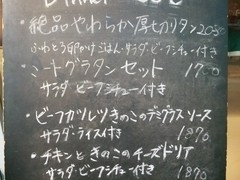 Dinner
・絶品やわらか厚切りタン 2050
ふわとろ卵かけごはん・サラダ・ビーフシチュー付き
・ミートグラタンセット 1780
サラダ ビーフシチュー付き
・ビーフカツレツきのこのデミグラスソース
サラダ・ライス付き 1890
・チキンときのこのチーズドリア
サラダ・ビーフシチュー付き 1890